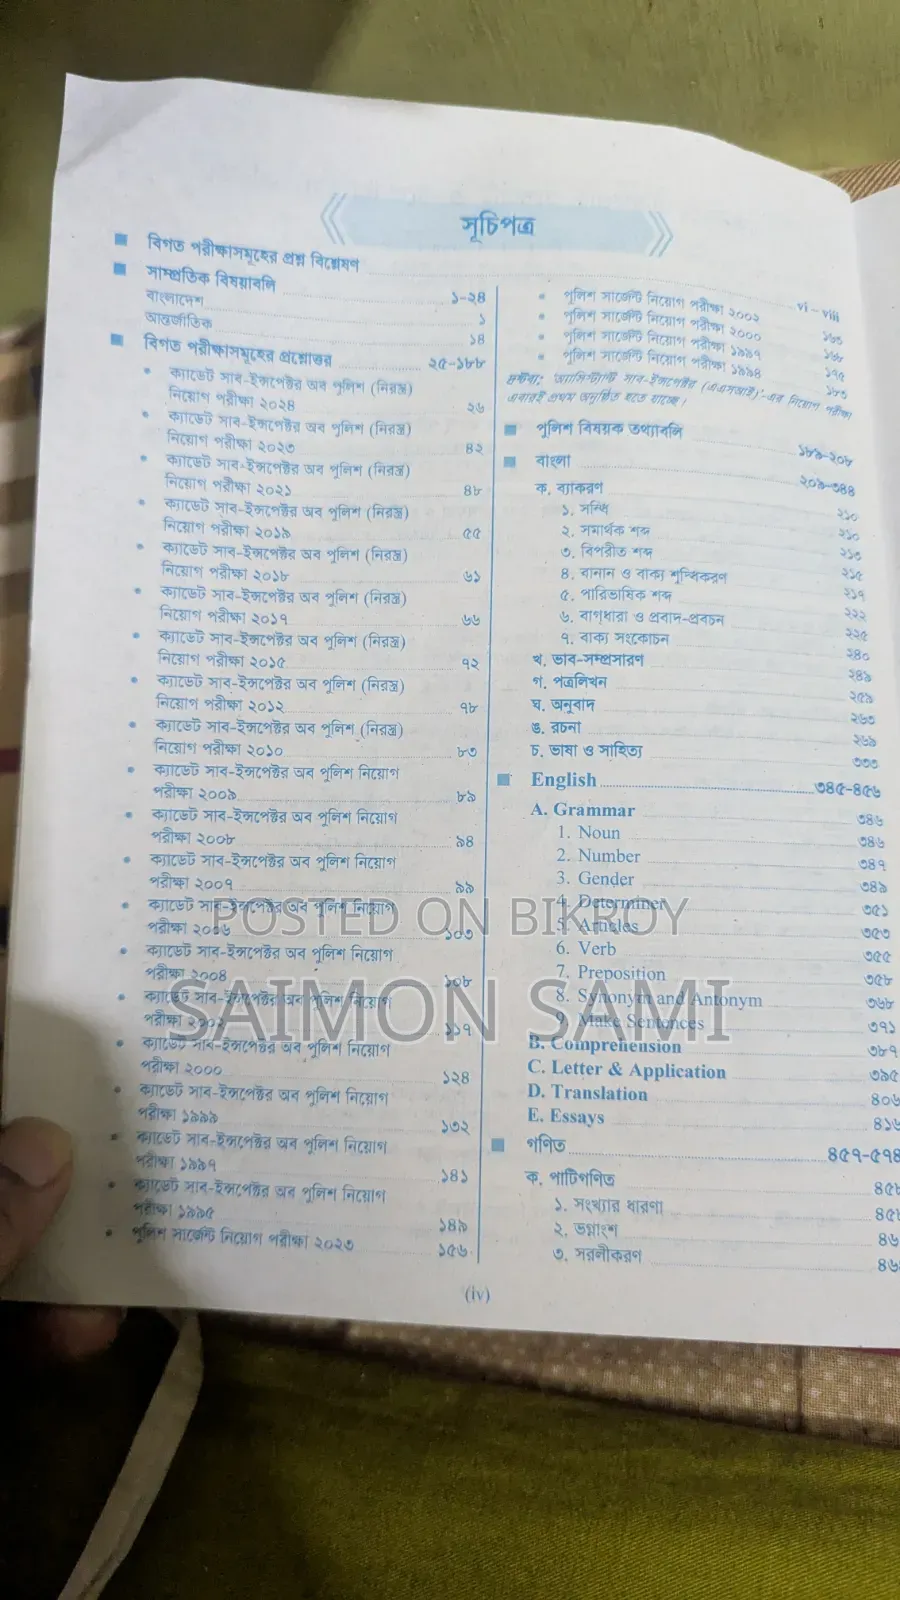 সূচিপত্র
বিগত পরীক্ষাসমূহের প্রশ্ন বিশ্লেষণ vi – viii
সাম্প্রতিক বিষয়াবলি ১-২৪
বাংলাদেশ ১
আন্তর্জাতিক ১৪
বিগত পরীক্ষাসমূহের প্রশ্নোত্তর ২৫-১৮৮
ক্যাডেট সাব-ইন্সপেক্টর অব পুলিশ (নিরস্ত্র)
নিয়োগ পরীক্ষা ২০২৪ ২৬
ক্যাডেট সাব-ইন্সপেক্টর অব পুলিশ (নিরস্ত্র)
নিয়োগ পরীক্ষা ২০২৩ ৪২
ক্যাডেট সাব-ইন্সপেক্টর অব পুলিশ (নিরস্ত্র)
নিয়োগ পরীক্ষা ২০২১ ৪৮
ক্যাডেট সাব-ইন্সপেক্টর অব পুলিশ (নিরস্ত্র)
নিয়োগ পরীক্ষা ২০১৯ ৫৫
ক্যাডেট সাব-ইন্সপেক্টর অব পুলিশ (নিরস্ত্র)
নিয়োগ পরীক্ষা ২০১৮ ৬১
ক্যাডেট সাব-ইন্সপেক্টর অব পুলিশ (নিরস্ত্র)
নিয়োগ পরীক্ষা ২০১৭ ৬৬
ক্যাডেট সাব-ইন্সপেক্টর অব পুলিশ (নিরস্ত্র)
নিয়োগ পরীক্ষা ২০১৫ ৭২
ক্যাডেট সাব-ইন্সপেক্টর অব পুলিশ (নিরস্ত্র)
নিয়োগ পরীক্ষা ২০১২ ৭৮
ক্যাডেট সাব-ইন্সপেক্টর অব পুলিশ (নিরস্ত্র)
নিয়োগ পরীক্ষা ২০১০ ৮৩
ক্যাডেট সাব-ইন্সপেক্টর অব পুলিশ নিয়োগ
পরীক্ষা ২০০৯ ৮৯
ক্যাডেট সাব-ইন্সপেক্টর অব পুলিশ নিয়োগ
পরীক্ষা ২০০৮ ৯৪
ক্যাডেট সাব-ইন্সপেক্টর অব পুলিশ নিয়োগ
পরীক্ষা ২০০৭ ৯৯
ক্যাডেট সাব-ইন্সপেক্টর অব পুলিশ নিয়োগ
পরীক্ষা ২০০৬ ১০৩
ক্যাডেট সাব-ইন্সপেক্টর অব পুলিশ নিয়োগ
পরীক্ষা ২০০৪ ১০৮
ক্যাডেট সাব-ইন্সপেক্টর অব পুলিশ নিয়োগ
পরীক্ষা ২০০২ ১১৭
ক্যাডেট সাব-ইন্সপেক্টর অব পুলিশ নিয়োগ
পরীক্ষা ২০০০ ১২৪
ক্যাডেট সাব-ইন্সপেক্টর অব পুলিশ নিয়োগ
পরীক্ষা ১৯৯৯ ১৩২
ক্যাডেট সাব-ইন্সপেক্টর অব পুলিশ নিয়োগ
পরীক্ষা ১৯৯৭ ১৪১
ক্যাডেট সাব-ইন্সপেক্টর অব পুলিশ নিয়োগ
পরীক্ষা ১৯৯৫ ১৪৯
পুলিশ সার্জেন্ট নিয়োগ পরীক্ষা ২০২৩ ১৫৬
পুলিশ সার্জেন্ট নিয়োগ পরীক্ষা ২০০২ ১৬৩
পুলিশ সার্জেন্ট নিয়োগ পরীক্ষা ২০০০ ১৬৮
পুলিশ সার্জেন্ট নিয়োগ পরীক্ষা ১৯৯৭ ১৭৫
পুলিশ সার্জেন্ট নিয়োগ পরীক্ষা ১৯৯৪ ১৮৩
দ্রষ্টব্য: 'অ্যাসিস্ট্যান্ট সাব-ইন্সপেক্টর (এএসআই)'-এর নিয়োগ পরীক্ষা
এবারই প্রথম অনুষ্ঠিত হতে যাচ্ছে।
পুলিশ বিষয়ক তথ্যাবলি ১৮৯-২০৮
বাংলা ২০৯-৩৪৪
ক. ব্যাকরণ ২১০
১. সন্ধি ২১০
২. সমার্থক শব্দ ২১৩
৩. বিপরীত শব্দ ২১৫
৪. বানান ও বাক্য শুদ্ধিকরণ ২১৭
৫. পারিভাষিক শব্দ ২২২
৬. বাগ্‌ধারা ও প্রবাদ-প্রবচন ২২৫
৭. বাক্য সংকোচন ২৪০
খ. ভাব-সম্প্রসারণ ২৪৯
গ. পত্রলিখন ২৫৯
ঘ. অনুবাদ ২৬৩
ঙ. রচনা ২৬৯
চ. ভাষা ও সাহিত্য ৩৩৩
English ৩৪৫-৪৫৬
A. Grammar ৩৪৬
1. Noun ৩৪৬
2. Number ৩৪৭
3. Gender ৩৪৯
4. Determiner ৩৫১
5. Articles ৩৫৩
6. Verb ৩৫৫
7. Preposition ৩৫৮
8. Synonym and Antonym ৩৬৮
9. Make Sentences ৩৭১
B. Comprehension ৩৮৭
C. Letter & Application ৩৯৫
D. Translation ৪০৬
E. Essays ৪১৬
গণিত ৪৫৭-৫৭৪
ক. পাটিগণিত
১. সংখ্যার ধারণা
২. ভগ্নাংশ
৩. সরলীকরণ
(iv)
POSTED ON BIKROY
SAIMON SAMI